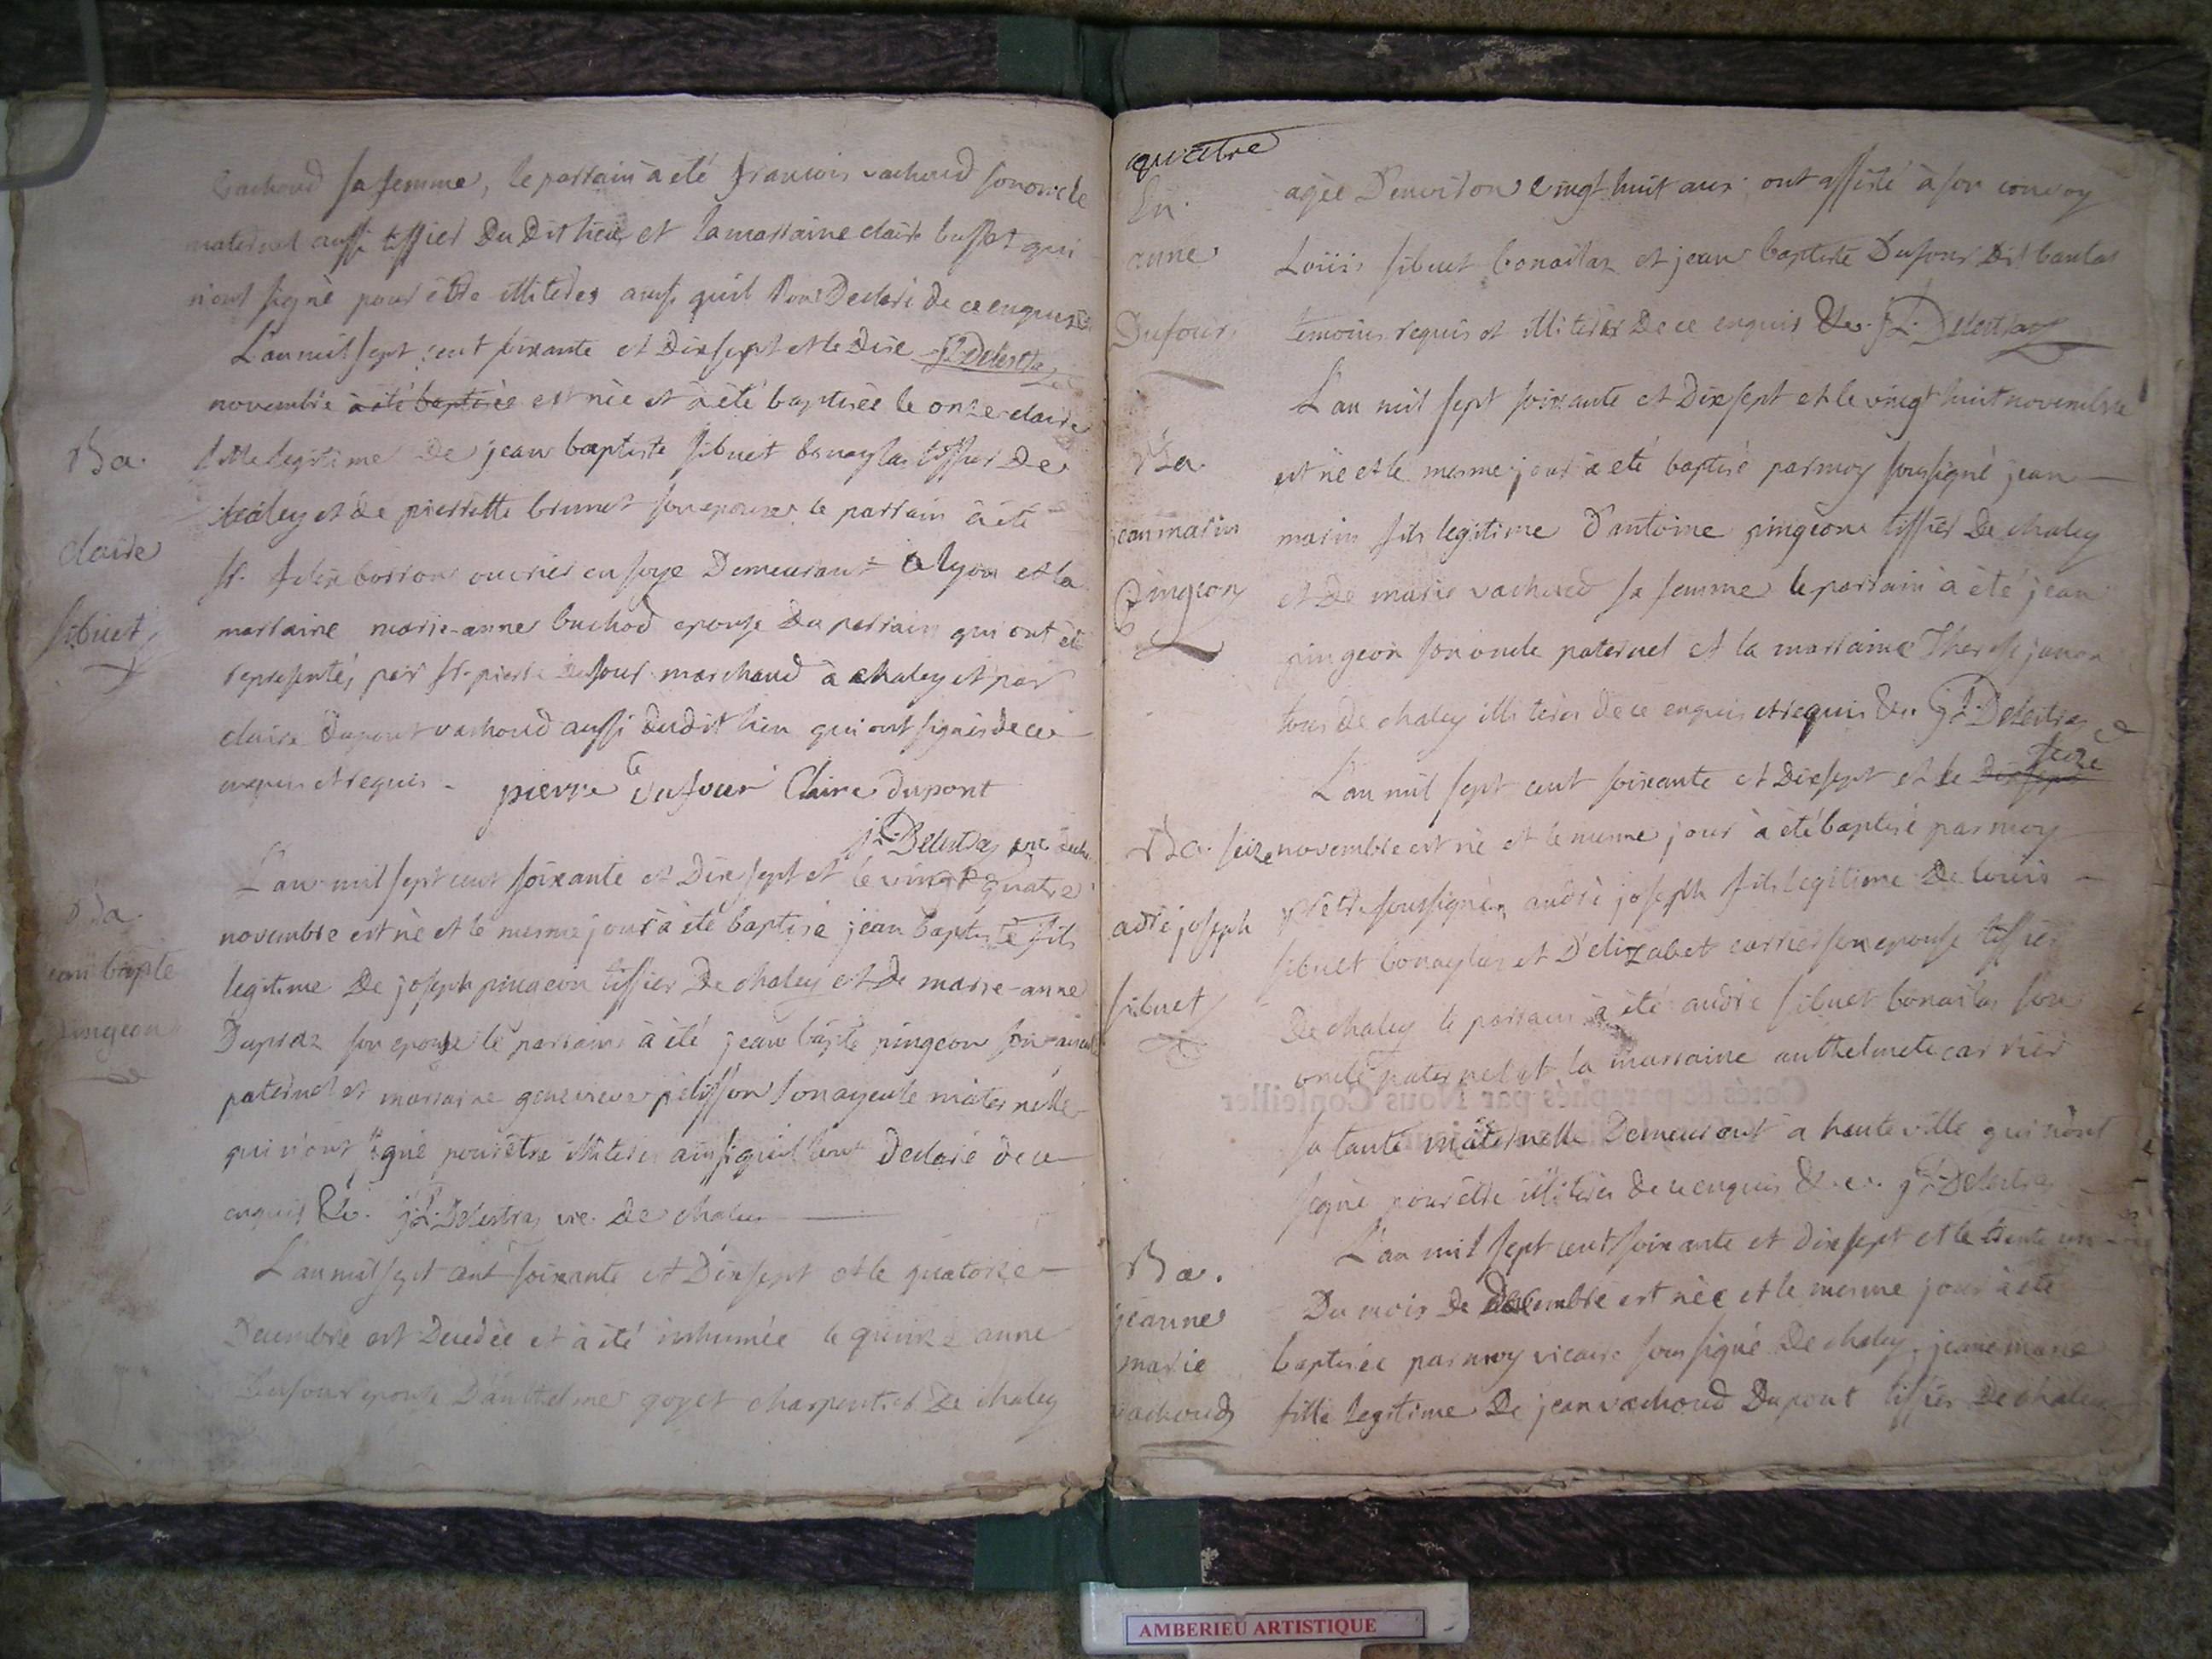 vachoud sa femme, le parrain à été francois vachoud son oncle
maternel aussi tissier Du Dit lieu et la marraine claire busset qui
n'ont signé pour être illiteres ainsi quil l'ont Declaré de ce enquis
L'an mil sept cent soixante et Dixsept et le Dixe jL Delestra
novembre à été baptisée est née et à été baptisée le onze claire
fille legitime De jean baptiste sibuet bonaylas tissier De
chaley et de pierrette brunet son epouse, le parrain à été
sr. felix borron ouvrier en soye Demeurant à lyon et la
marraine marie-anne buchod epouse Du parrain qui ont été
representés par sr. pierre Dufour marchand à chaley et par
claire Dupont vachoud aussi dudit lieu qui ont signés de ce
enquis et requis. pierre Dufour Claire dupont
jL Delestras vic
L'an mil sept cent soixante et Dix sept et le vingt quatre
novembre est né et le mesme jour à été baptisé jean baptiste fils
legitime De joseph pingeon tissier De chaley et de marie-anne
Dupraz son epouse le parrain à été jean bapte pingeon son
paternel et marraine genevieve pelisson son ayeule maternelle
qui n'ont signé pour être illiteres ainsi quil l'ont Declaré de ce
enquis &c. jL Delestras vic. De chaley
L'an mil sept cent soixante et Dixsept et le quatorze
Decembre est Decedée et à été inhumée le quinze anne
Dufour epouse D'anthelme goyet charpentier De chaley
Ba.
claire
sibuet
Ba.
jean bapte
pingeon
quatre
agée D'environ vingt huit ans. ont assisté à son convoy
Loüis sibuet bonailas et jean baptiste Dufour Dit
temoins requis et illiteres De ce enquis &c. jL Delestras
L'an mil sept soixante et Dixsept et le vingt huit novembre
est né et le mesme jour à eté baptisé par moy soussigné jean
marin fils legitime d'antoine pingeon tissier De chaley
et De marie vachoud sa femme le parrain à été jean
pingeon son oncle paternel et la marraine Therese
tous de chaley illiteres de ce enquis et requis &c. jL Delestras
L'an mil sept cent soixante et Dixsept et le Dixsept seize
seize novembre est né et le mesme jour à été baptisé par moy
prêtre soussigné, andré joseph fils legitime De louis
sibuet bonaylas et D'elizabet carrier son epouse tissier
De chaley le parrain à été andré sibuet bonailas son
oncle paternel et la marraine anthelmete carrier
sa tante maternelle Demeurant a hauteville qui n'ont
signé pour être illiteres de ce enquis &c. jL Delestras
L'an mil sept cent soixante et dixsept et le trente un
Du mois de decembre est née et le mesme jour à été
baptisée par moy vicaire soussigné De chaley, jeane marie
fille legitime De jean vachoud Dupont tissier De chaley
En.
anne
Dufour
Ba.
jean marin
Pingeon
Ba.
adré joseph
sibuet
Ba.
jeanne
marie
vachoud
Cotés & paraphés par Nous Conseiller
AMBERIEU ARTISTIQUE